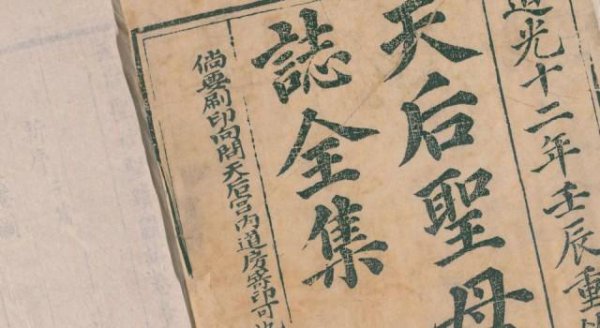 道光十二年壬辰重
天后聖母
誌全集
倘要刷印向閩天后宮內道房寄印可也